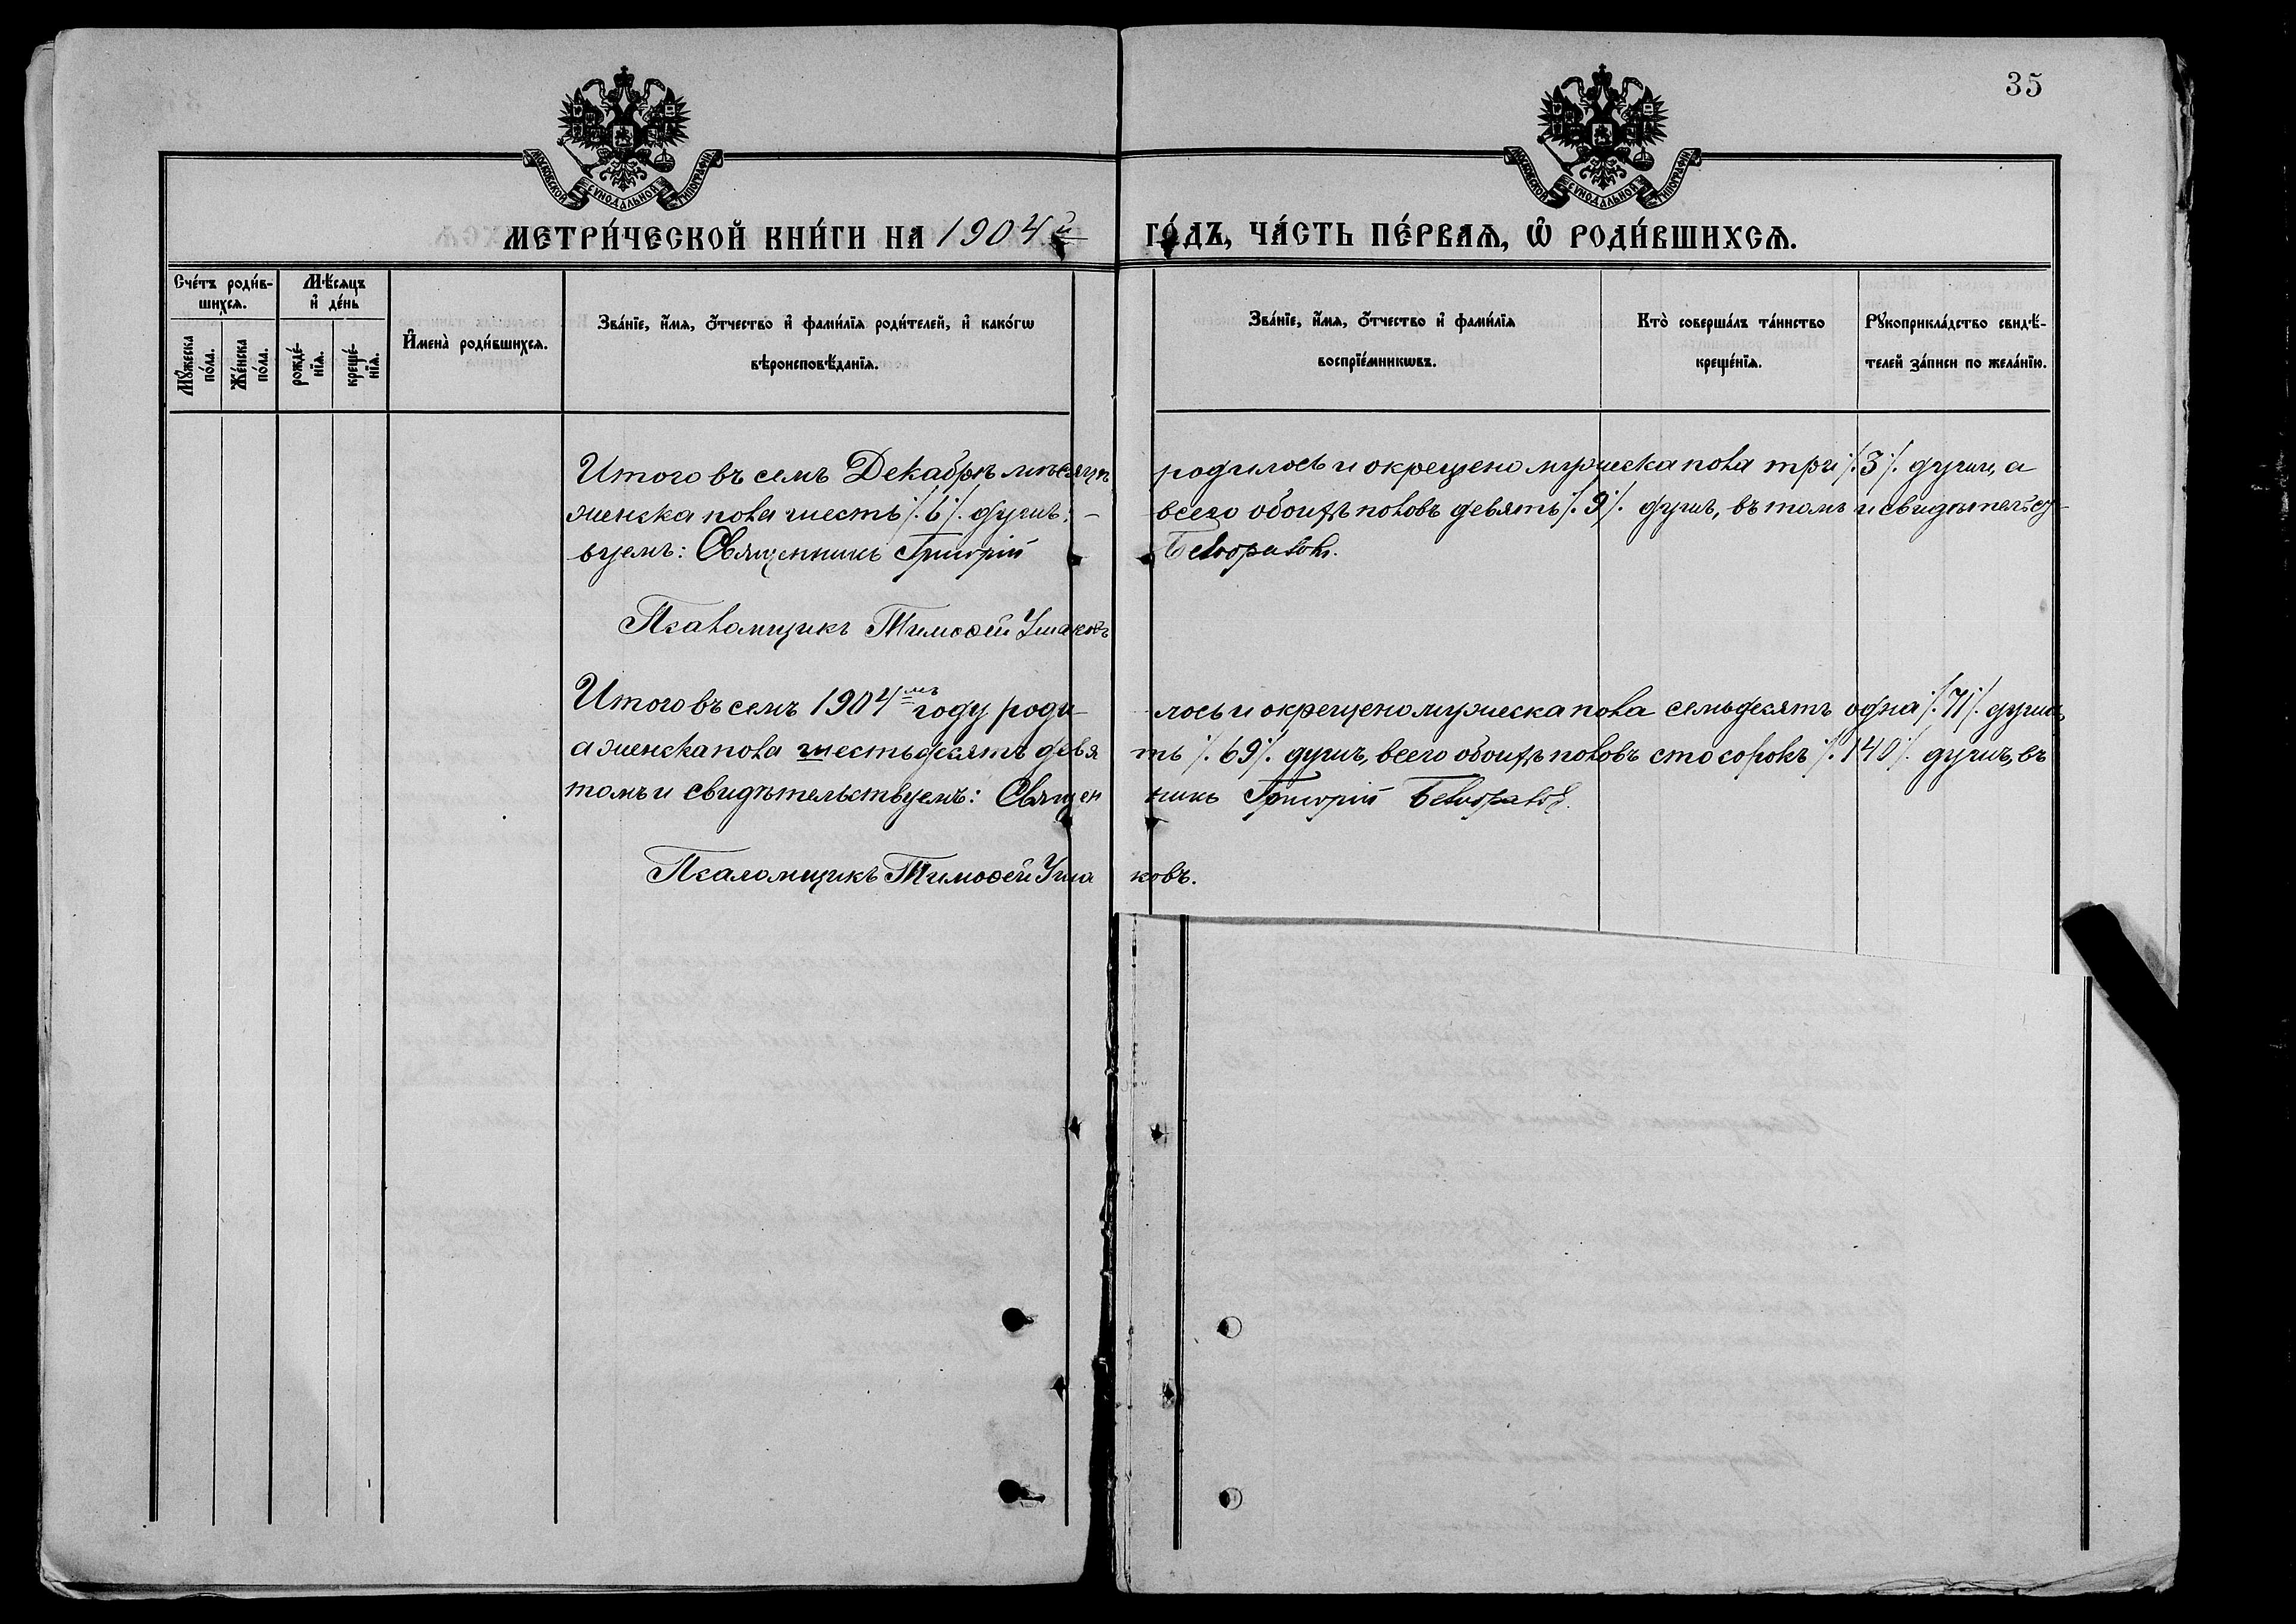 35
МОСКОВСКОЙ СѴНОДАЛЬНОЙ ТИПОГРАФІИ
МОСКОВСКОЙ СѴНОДАЛЬНОЙ ТИПОГРАФІИ
МЕТРИ́ЧЕСКОЙ КНИ́ГИ НА 1904й ГО́ДЪ, ЧА́СТЬ ПЕ́РВАѦ, Ѡ҆ РОДИ́ВШИХСѦ.
Сче́тъ роди́в-
шихсѧ.
Мꙋ́жеска
по́ла.
Же́нска
по́ла.
Мѣ́сѧцъ
и҆ де́нь
рожде́-
нїѧ.
креще́-
нїѧ.
И҆мена̀ роди́вшихсѧ.
Зва́нїе, и҆́мѧ, ѻ҆́тчество и҆ фами́лїѧ роди́телей, и҆ како́гѡ
вѣроисповѣ́данїѧ.
Зва́нїе, и҆́мѧ, ѻ҆́тчество и҆ фами́лїѧ
воспрїе́мникѡвъ.
Кто̀ соверша́лъ та́инство
креще́нїѧ.
Рꙋкоприкла́дство свидѣ́-
телей за́писи по жела́нїю.
Итого въ семъ Декабрѣ мѣсяцѣ родилось и окрещено мужеска пола три ./.3./. души, а
женска пола шесть ./.6./. душъ; – всего обоихъ половъ девять ./.9./. душъ, въ томъ и свидѣтельст-
вуемъ: Священникъ Григорій
Псаломщикъ Тимоѳей Ушаковъ
Итого въ семъ 1904мъ году роди- лось и окрещено мужеска пола семьдесятъ одна ./.71./. душа,
а женска пола шестьдесятъ девя ть ./.69./. душъ, всего обоихъ половъ сто сорокъ ./.140./. душъ, въ
томъ и свидѣтельствуемъ: Священ никъ Григорій
Псаломщикъ Тимоѳей Уша ковъ.